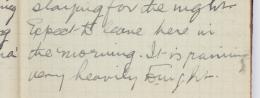 staying for the night.
Expect to leave here in
the morning. It is raining
very heavily tonight.